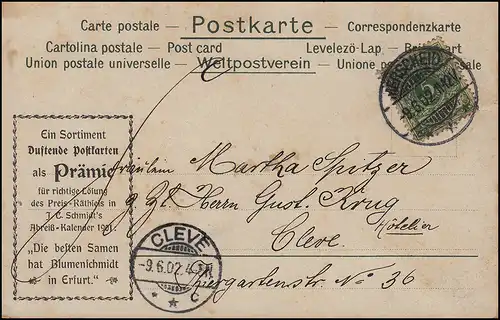 Carte postale – Postkarte – Correspondenzkarte
Cartolina postale – Post card Levelezö-Lap –
Union postale universelle – Weltpostverein – Unione
Ein Sortiment
Duftende Postkarten
als Prämie
für richtige Lösung
des Preis-Räthsels in
J. C. Schmidt's
Abreiß-Kalender 1901.
„Die besten Samen
hat Blumenschmidt
in Erfurt."
5
Fräulein Martha Spitzer
z. Zt. Herrn Gust. Krug
Hôtelier
Cleve
Tiergartenstr. No. 36
CLEVE
-9.6.02.4-
* * c